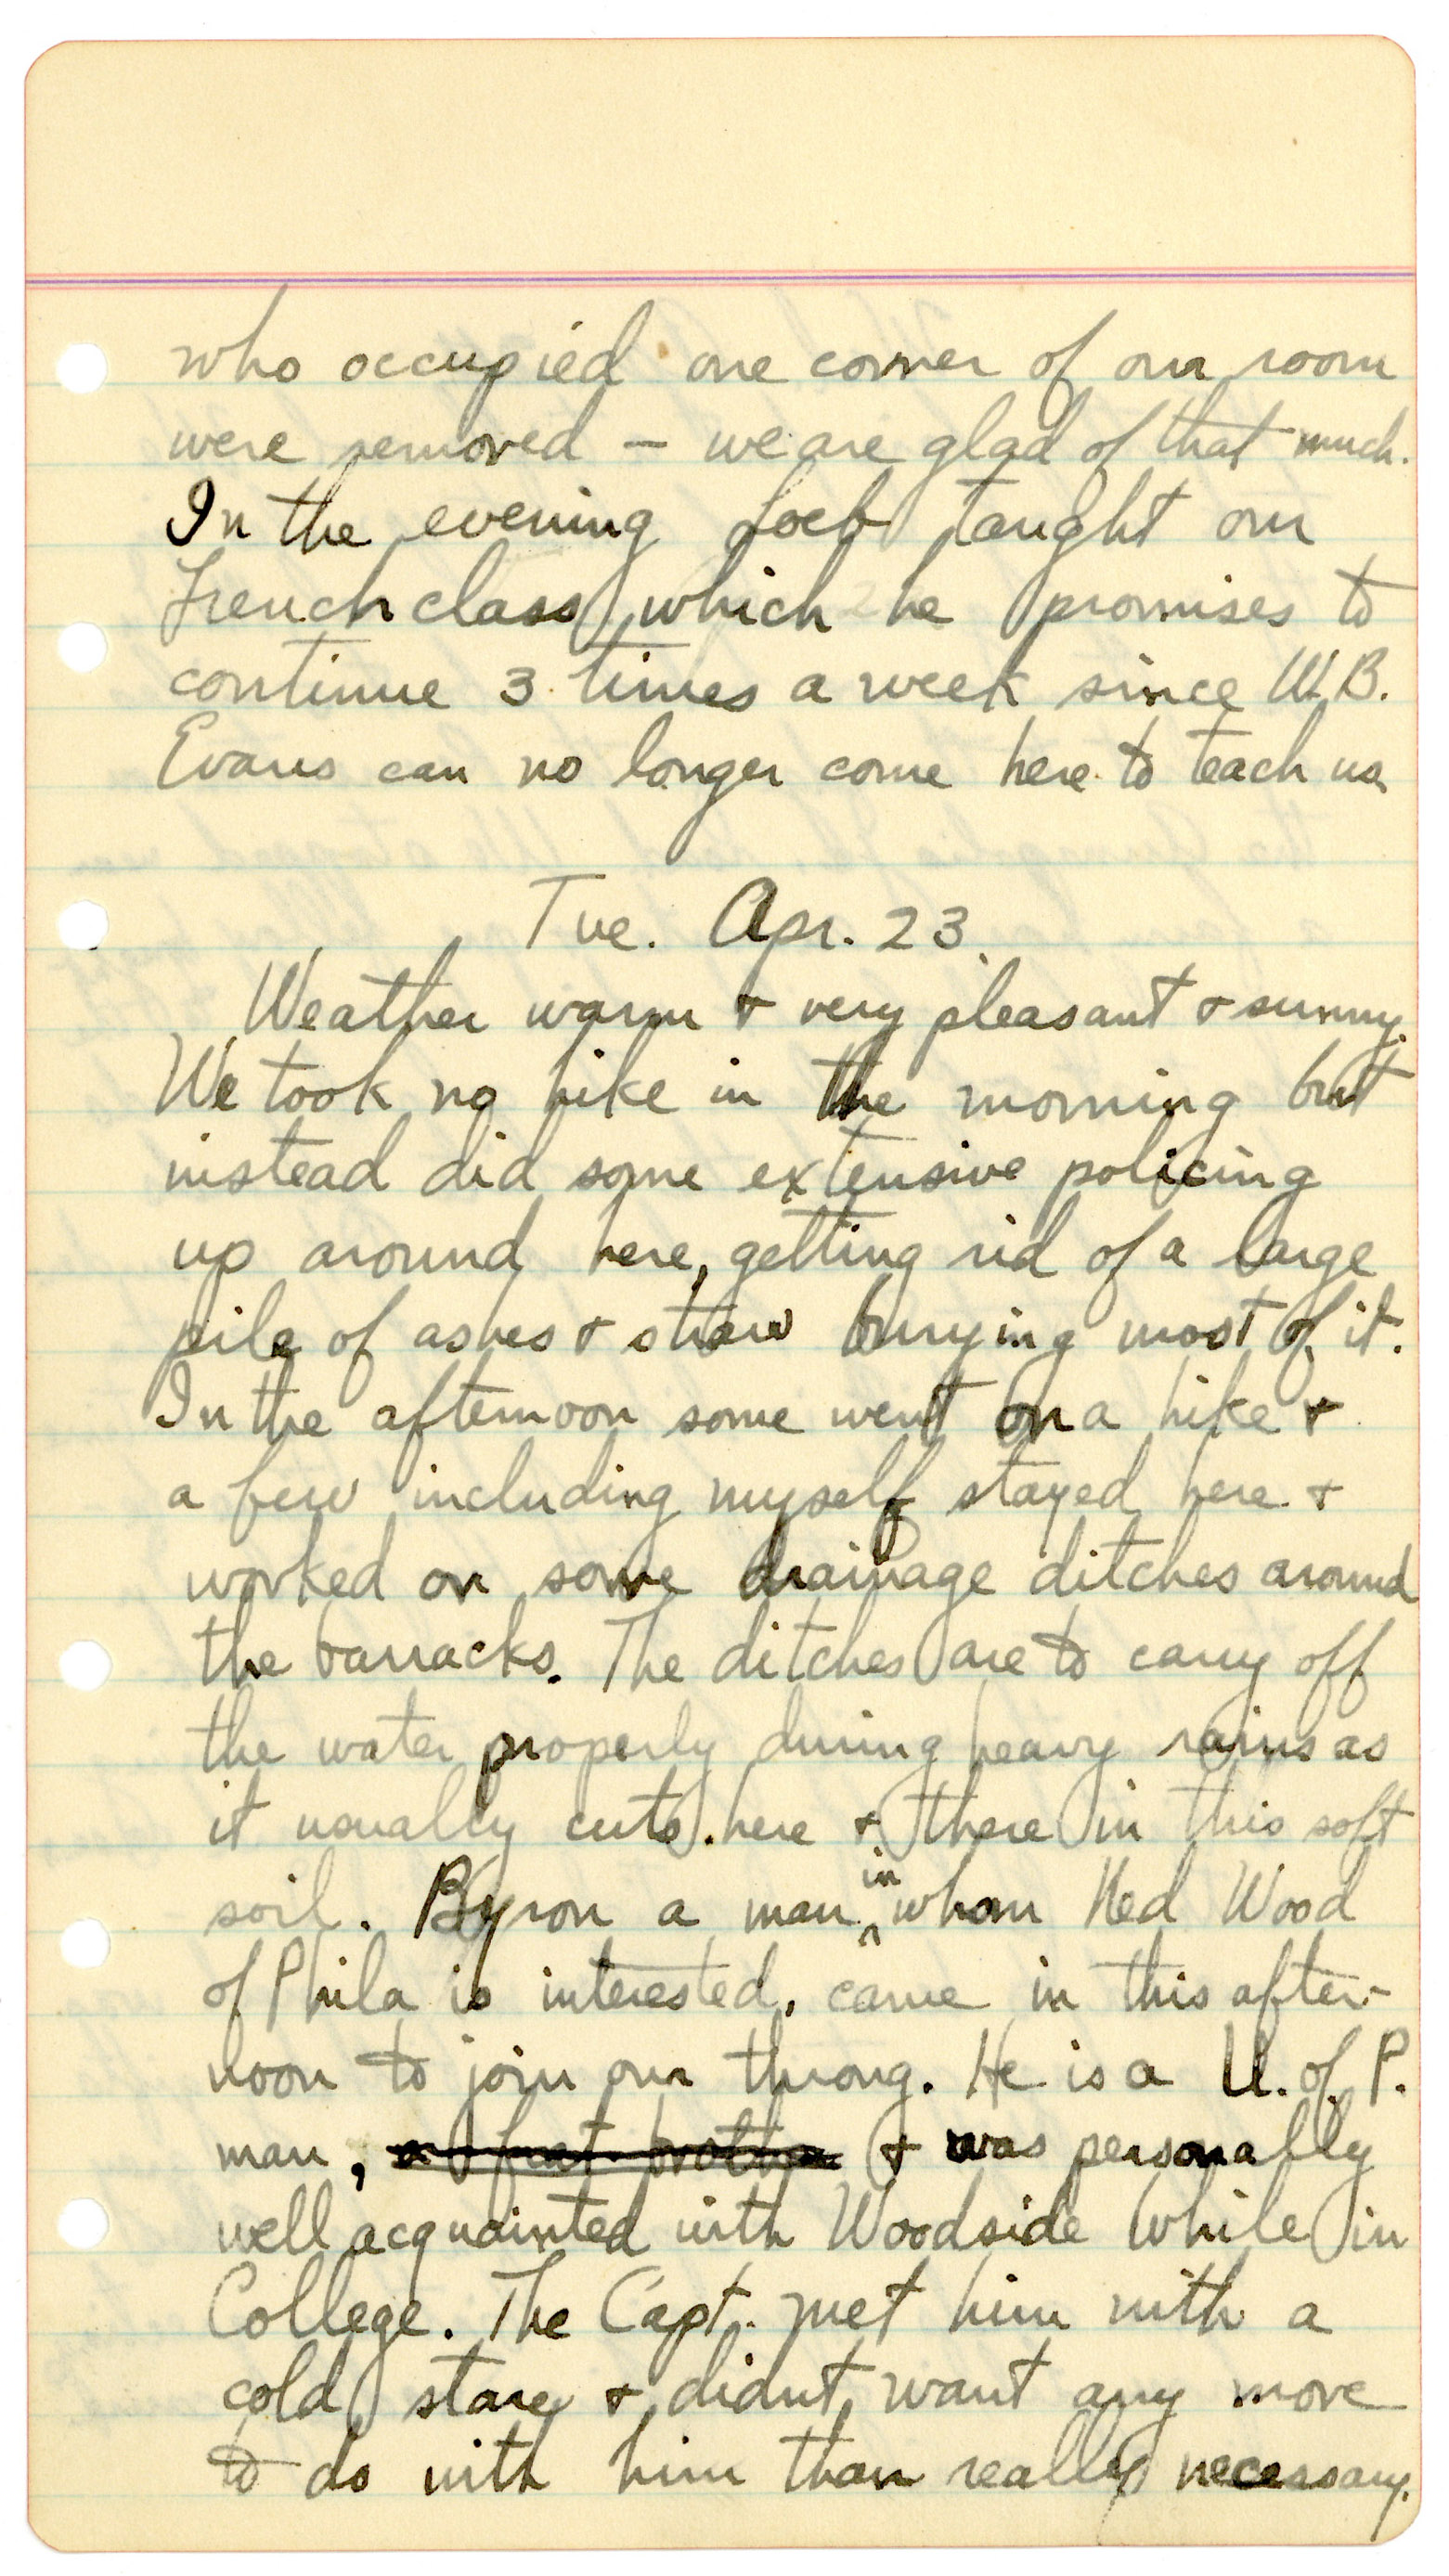 who occupied one corner of our room
were removed – we are glad of that much.
In the evening Loeb taught our
French class which he promises to
continue 3 times a week since W.B.
Evans can no longer come here to teach us.
Tue. Apr. 23.
Weather warm + very pleasant + sunny.
We took no hike in the morning but
instead did some extensive policing
up around here, getting rid of a large
pile of ashes + straw burying most of it.
In the afternoon some went on a hike +
a few including myself stayed here +
worked on some drainage ditches around
the barracks. The ditches are to carry off
the water properly during heavy rains as
it usually cuts here + there in this soft
soil. Byron a man in whom Ned Wood
of Phila is interested, came in this after-
noon to join our throng. He is a U. of P.
man, a frat brother + was personally
well acquainted with Woodside while in
College. The Capt. met him with a
cold stare + didnt want any more
to do with him than really necessary.